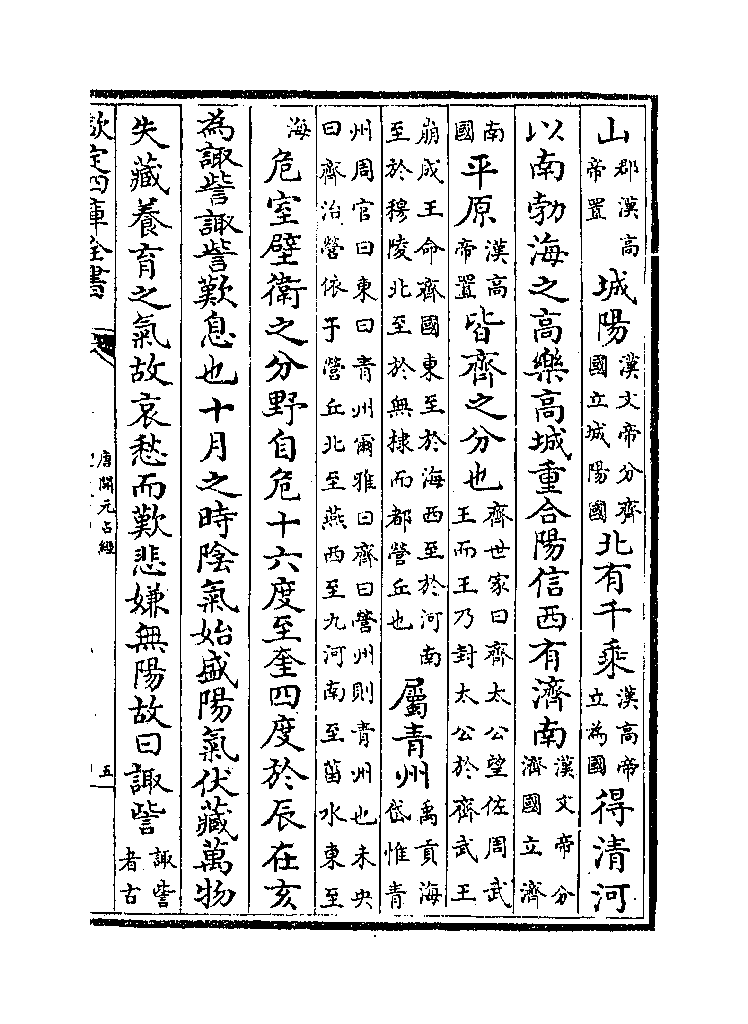 山郡漢高帝置城陽漢文帝分齊國立城陽國北有千乘漢高帝立為國得清河
以南勃海之高樂高城重合陽信西有濟南漢文帝分濟國立濟
南國平原漢高帝置皆齊之分也齊世家曰齊太公望佐周武王而王乃封太公於齊武王
崩成王命齊國東至於海西至於河南至於穆陵北至於無棣而都營丘也屬青州禹貢海岱惟青
州周官曰東曰青州爾雅曰齊曰營州則青州也未央曰齊治營依于營丘北至燕西至九河南至菑水東至
海危室壁衛之分野自危十六度至奎四度於辰在亥
為諏訾諏訾歎息也十月之時陰氣始盛陽氣伏藏萬物
失藏養育之氣故哀愁而歎悲嫌無陽故曰諏訾諏訾者古
欽定四庫全書
唐開元占經
五